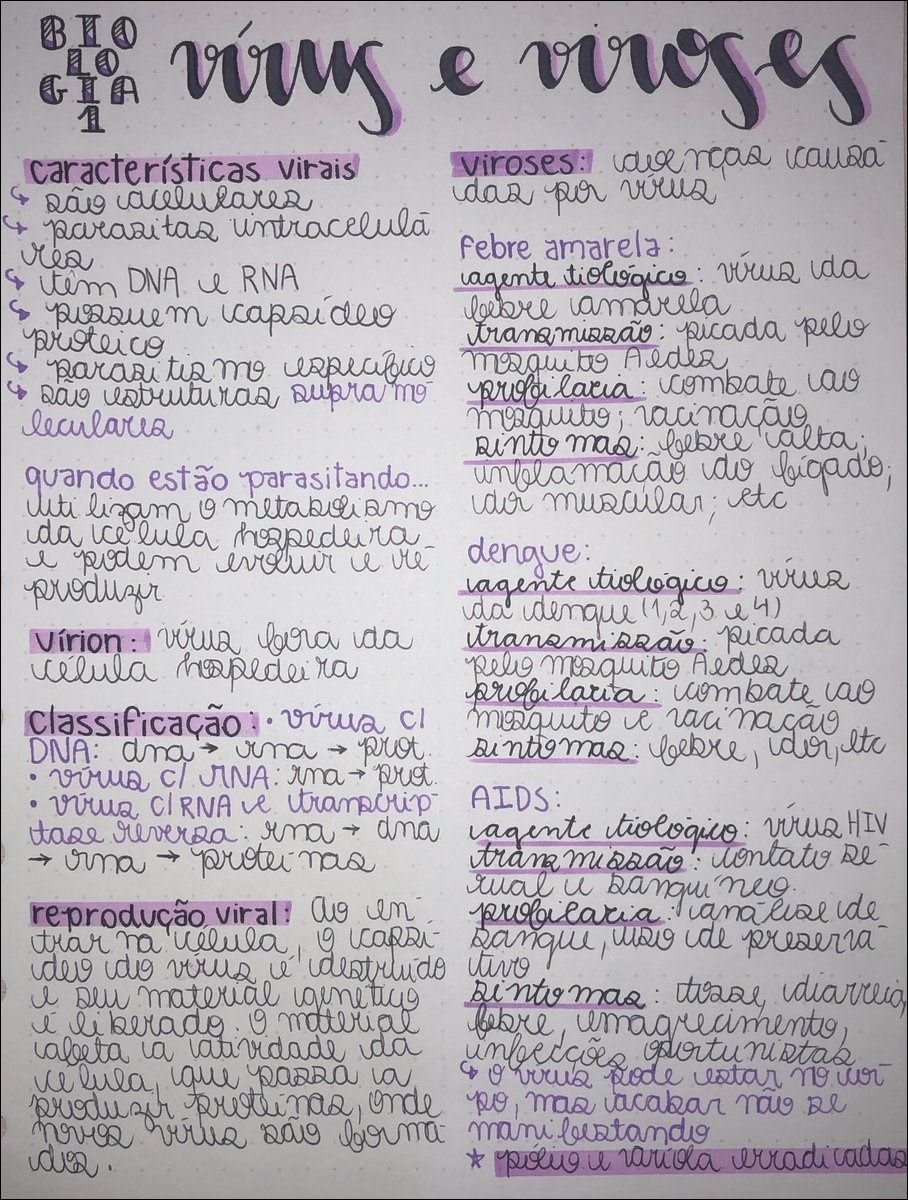 BIO
LO
GIA
1
vírus e viroses
características virais
↳ são acelulares
↳ parasitas intracelulá
res
↳ têm DNA e RNA
↳ possuem capsídeo
proteico
↳ parasitismo específico
↳ são estruturas supramo
leculares
quando estão parasitando...
utilizam o metabolismo
da célula hospedeira
e podem evoluir e re-
produzir
vírion: vírus fora da
célula hospedeira
classificação: • vírus c/
DNA: dna → rna → prot.
• vírus c/ RNA: rna → prot.
• vírus c/ RNA e transcrip-
tase reversa: rna → dna
→ rna → proteínas
reprodução viral: Ao en-
trar na célula, o capsí-
deo do vírus é destruído
e seu material genético
é liberado. O material
afeta a atividade da
célula, que passa a
produzir proteínas, onde
novos vírus são forma-
dos.
viroses: doenças causa
das por vírus
febre amarela:
agente tiológico: vírus da
febre amarela
transmissão: picada pelo
mosquito Aedes
profilaria: combate ao
mosquito; vacinação
sintomas: febre alta;
inflamação do fígado;
dor muscular; etc
dengue:
agente tiológico: vírus
da dengue (1, 2, 3 e 4)
transmissão: picada
pelo mosquito Aedes
profilaria: combate ao
mosquito e vacinação
sintomas: febre, dor, etc
AIDS:
agente tiológico: vírus HIV
transmissão: contato se-
xual e sanguíneo.
profilaria: análise de
sangue, uso de preserva-
tivo
sintomas: tosse, diarreia,
febre, emagrecimento,
infecções oportunistas
↳ o vírus pode estar no cor-
po, mas acabar não se
manifestando
* pólio e varíola erradicadas